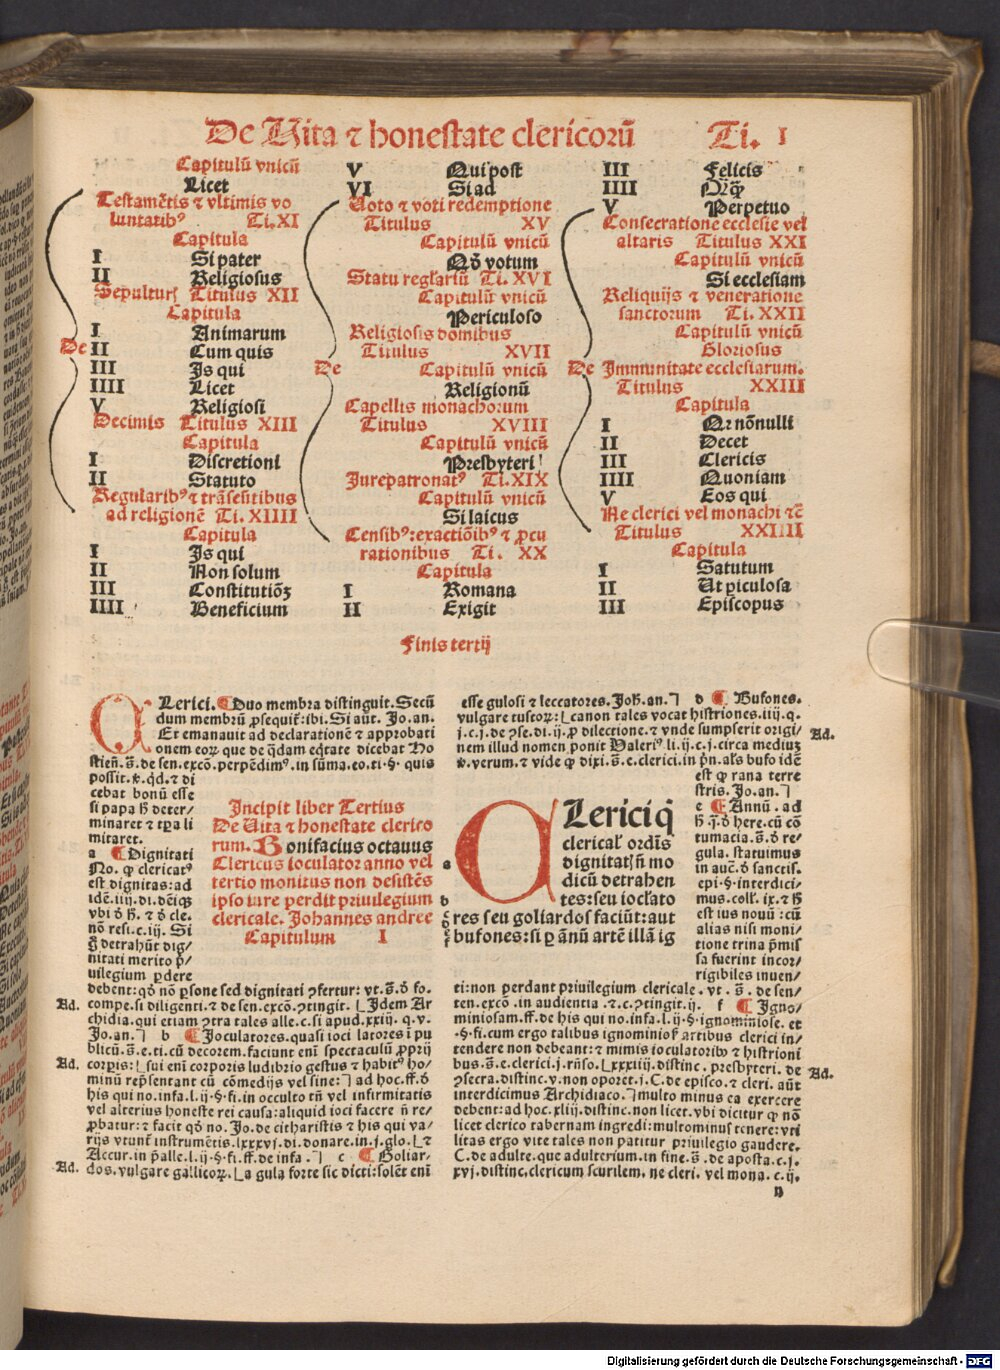 De Vita ⁊ honestate clericorū Ti. I
Capitulū vnicū
Licet
Testamētis ⁊ vltimis vo
luntatibꝰ Ti. XI
Capitula
I Si pater
II Religiosus
Titulus XII
Capitula
I Animarum
De II Cum quis
III Is qui
IIII Licet
V Religiosi
Decimis Titulus XIII
Capitula
I Discretioni
II Statuto
Regularibꝰ ⁊ trāseūtibus
ad religionē Ti. XIIII
Capitula
I Is qui
II Non solum
III Constitutiōꝫ
IIII Beneficium
V Qui post
VI Si ad
Voto ⁊ voti redemptione
Titulus XV
Capitulū vnicū
Qđ votum
Statu regłariū Ti. XVI
Capitulū vnicū
Periculoso
Religiosis domibus
Titulus XVII
De Capitulū vnicū
Religionū
Capellis monachorum
Titulus XVIII
Capitulū vnicū
Presbyteri
Jurepatronatꝰ Ti. XIX
Capitulū vnicū
Si laicus
Censibꝰ: exactiōibꝰ ⁊ ꝓcu
rationibus Ti. XX
Capitula
I Romana
II Exigit
III Felicis
IIII
V Perpetuo
Consecratione ecclesie vel
altaris Titulus XXI
Capitulū vnicū
Si ecclesiam
Reliquijs ⁊ veneratione
sanctorum Ti. XXII
Capitulū vnicū
Gloriosus
De Immunitate ecclesiarum.
Titulus XXIII
Capitula
I Qr nōnulli
II Decet
III Clericis
IIII Quoniam
V Eos qui
Ne clerici vel monachi ⁊ē
Titulus XXIIII
Capitula
I Satutum
II Ut piculosa
III Episcopus
Finis tertij
CLerici. Duo membra distinguit. Secū
dum membrū ꝓsequit᷑: ibi. Si aūt. Jo. an.
Et emanauit ad declarationē ⁊ approbati
onem eoꝝ que de q̄dam eq̄tate dicebat Ho
stieñ. s̄. de sen. excō. perpēdimꝰ. in sūma. eo. ti. §. quis
possit. ⁊. qđ. ⁊ di
cebat bonū esse
si papa h̄ deter/
minaret ⁊ tꝑa li
mitaret.
a Dignitati
No. ꝙ clericatꝰ
est dignitas: ad
idē. iiij. di. deiq̄
vbi ō h̄. ⁊ ō cle.
nō resi. c. iij. Si
detrahūt dig/
nitati merito p̄/
uilegium ꝑdere
debent: qđ nō ꝑsone sed dignitati ꝯfertur: vt. s̄. ō fo.
Ad. compe. si diligenti. ⁊ de sen. excō. ꝯtingit. [Idem Ar
chidia. qui etiam ꝯtra tales alle. c. si apud. xxiij. q. v.
Jo. an.] b Joculatores. quasi ioci latores i pu
blicū. s̄. e. ti. cū decorem. faciunt enī spectaculū ꝓprij
Ad. corpis: [sui enī corporis ludibrio gestus ⁊ habitꝰ ho/
minū rep̄sentant cū cōmedijs vel sine:] ad hoc. ff. ō
his qui no. infa. l. ij. §. fi. in occulto tñ vel infirmitatis
vel alterius honeste rei causa: aliquid ioci facere ñ re/
ꝓbatur: ⁊ facit qđ no. Jo. de citharistis ⁊ his qui va/
rijs vtunt᷑ instrumētis. lxxxvj. di. donare. in. j. glo. [⁊
Accur. in p̄alle. l. ij. §. fi. ff. de infa.] c Goliar/
Ad. dos. vulgare gallicoꝝ. [a gula forte sic dicti: solēt enī
Incipit liber Tertius
De Uita ⁊ honestate clerico
rum. Bonifacius octauus
Clericus ioculator anno vel
tertio monitus non desistēs
ipso iure perdit priuilegium
clericale. Johannes andree
Capitulum I
esse gulosi ⁊ leccatores. Joh. an.] d Bufones.
vulgare tuscoꝝ: [canon tales vocat histriones. iiij. q.
j. c. j. de ꝯse. di. ij. ꝓ dilectione. ⁊ vnde sumpserit origi/ Ad.
nem illud nomen ponit Valeriꝰ. li. ij. c. j. circa mediuꝫ
⁊. verum. ⁊ vide ꝙ dixi. s̄. e. clerici. in p̄n. als bufo idē
est ꝙ rana terre
stris. Jo. an.]
e Annū. ad
h̄ q̄. ō here. cū cō
tumacia. s̄. ō re/
gula. statuimus
in auc̄. ō sanctis.
epi. §. interdici/
mus. coll. ix. ⁊ h̄
est ius nouū: cū
alias nisi moni/
tione trina p̄mis
sa fuerint incor/
rigibiles inuen/
a CLerici q̄
clerical᷑ ordīs
dignitat᷑ ñ mo
dicū detrahen
b tes: seu iocłato
c res seu goliardos faciūt: aut
bufones: si ꝑ ānū artē illā ig
ti: non perdant priuilegium clericale. vt. s̄. de sen/
ten. excō. in audientia. ⁊. c. ꝯtingit. ij. f Igno/
miniosam. ff. de his qui no. infa. l. ij. §. ignominiose. et
§. fi. cum ergo talibus ignominiosꝭ artibus clerici in/
tendere non debeant: ⁊ mimis ioculatoribꝰ ⁊ histrioni
bus. s̄. e. clerici. j. rn̄so. [xxxiij. distinc. presbyteri. de Ad.
ꝯsecra. distinc. v. non oporet. j. C. de episco. ⁊ cleri. aūt
interdicimus Archidiaco.] multo minus ea exercere
debent: ad hoc. xlij. distinc. non licet. vbi dicitur ꝙ nō
licet clerico tabernam ingredi: multominus tenere: vti
litas ergo vite tales non patitur priuilegio gaudere.
C. de adulte. que adulterium. in fine. s̄. de aposta. c. j.
xvj. distinc. clericum scurilem. ne cleri. vel mona. c. ij.
n
Digitalisierung gefördert durch die Deutsche Forschungsgemeinschaft - DFG